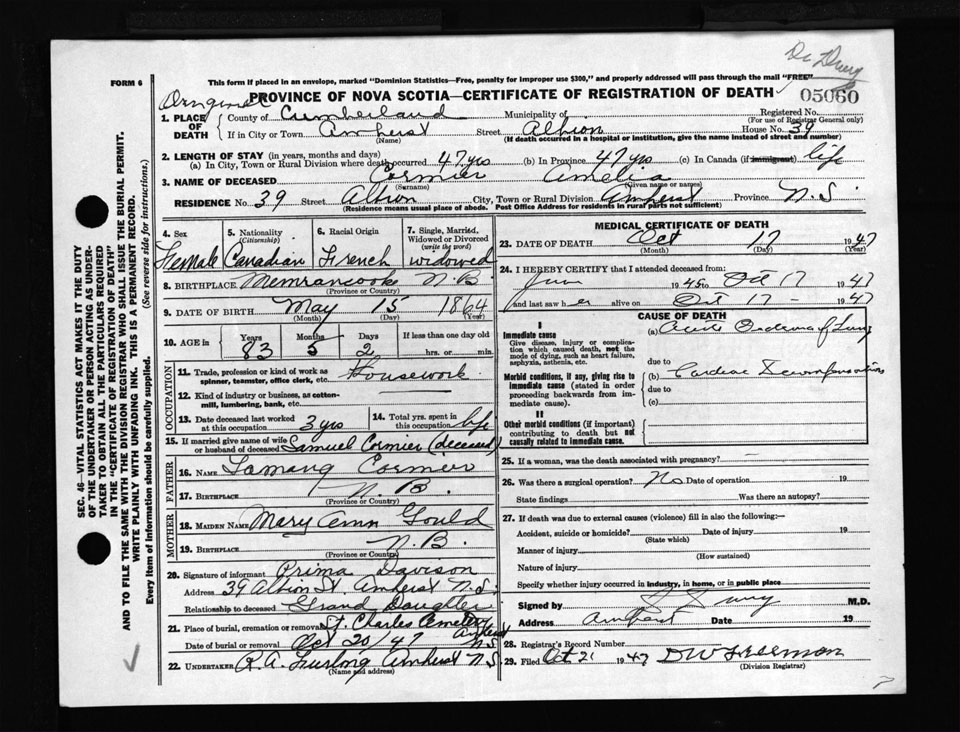 Dr Drury
FORM 6
This form if placed in an envelope, marked "Dominion Statistics—Free, penalty for improper use $300," and properly addressed will pass through the mail "FREE"
Original
PROVINCE OF NOVA SCOTIA—CERTIFICATE OF REGISTRATION OF DEATH
05060
1. PLACE OF DEATH
County of Cumberland Municipality of Registered No.
(For use of Registrar General only)
If in City or Town Amherst Street Albion House No. 39
(Name) (If death occurred in a hospital or institution, give the name instead of street and number)
2. LENGTH OF STAY (in years, months and days)
(a) In City, Town or Rural Division where death occurred 47 yrs (b) In Province 47 yrs (c) In Canada (if immigrant) life
3. NAME OF DECEASED Cormier Amelia
(Surname) (Given name or names)
RESIDENCE No. 39 Street Albion City, Town or Rural Division Amherst Province N.S.
(Residence means usual place of abode. Post Office Address for residents in rural parts not sufficient)
4. Sex
Female
5. Nationality
(Citizenship)
Canadian
6. Racial Origin
French
7. Single, Married, Widowed or Divorced
(write the word)
widowed
8. BIRTHPLACE Memramcooke N.B
(Province or Country)
9. DATE OF BIRTH May 15 1864
(Month) (Day) (Year)
10. AGE in
Years Months Days If less than one day old
83 5 2 hrs. or min.
OCCUPATION
11. Trade, profession or kind of work as
spinner, teamster, office clerk, etc. Housework
12. Kind of industry or business, as cotton-
mill, lumbering, bank, etc.
13. Date deceased last worked
at this occupation 3 yrs
14. Total yrs. spent in
this occupation life
15. If married give name of wife
or husband of deceased Samuel Cormier (deceased)
FATHER
16. NAME Cormier
17. BIRTHPLACE N.B.
(Province or Country)
MOTHER
18. MAIDEN NAME Mary Ann Gould
19. BIRTHPLACE N.B.
(Province or Country)
20. Signature of informant Prima Davison
Address 39 Albion St. Amherst N.S.
Relationship to deceased Grand Daughter
21. Place of burial, cremation or removal St. Charles Cemetery Amherst N.S
Date of burial or removal Oct 20/47
22. UNDERTAKER R.A. Furlong Amherst N.S.
(Name and address)
MEDICAL CERTIFICATE OF DEATH
23. DATE OF DEATH Oct 17 1947
(Month) (Day) (Year)
24. I HEREBY CERTIFY that I attended deceased from:
1945 to Oct 17 1947
and last saw her alive on Oct 17 - 1947
CAUSE OF DEATH
I
Immediate cause
Give disease, injury or complication which caused death, not the mode of dying, such as heart failure, asphyxia, asthenia, etc.
(a) Acute Oedema of Lung
due to
Morbid conditions, if any, giving rise to immediate cause (stated in order proceeding backwards from immediate cause).
(b) Cardiac Decompensation
due to
(c)
II
Other morbid conditions (if important) contributing to death but not causally related to immediate cause.
25. If a woman, was the death associated with pregnancy? —
26. Was there a surgical operation? No Date of operation 19
State findings Was there an autopsy?
27. If death was due to external causes (violence) fill in also the following:—
Accident, suicide or homicide? Date of injury 19
(State which)
Manner of injury
(How sustained)
Nature of injury
Specify whether injury occurred in industry, in home, or in public place
Signed by M.D.
Address Amherst Date 19
28. Registrar's Record Number
29. Filed Oct 21 1947 D W Freeman
(Division Registrar)
SEC. 46—VITAL STATISTICS ACT MAKES IT THE DUTY
OF THE UNDERTAKER OR PERSON ACTING AS UNDER-
TAKER TO OBTAIN ALL THE PARTICULARS REQUIRED
IN THE "CERTIFICATE OF REGISTRATION OF DEATH"
AND TO FILE THE SAME WITH THE DIVISION REGISTRAR WHO SHALL ISSUE THE BURIAL PERMIT.
WRITE PLAINLY WITH UNFADING INK. THIS IS A PERMANENT RECORD.
Every item of Information should be carefully supplied. (See reverse side for instructions.)